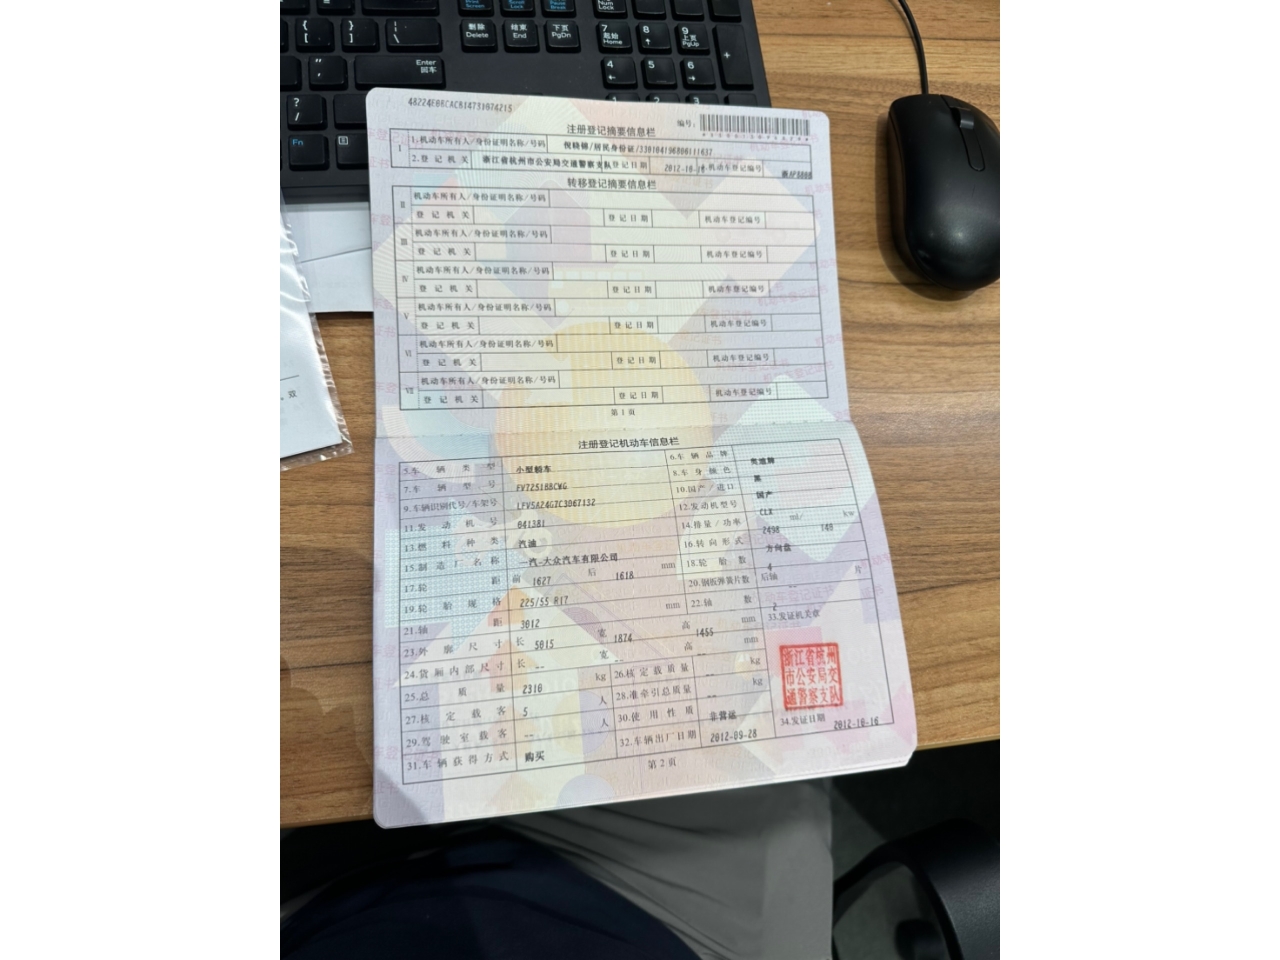 删除 Delete 结束 End 下页 PgDn
7 起始 Home 8 9 上页 PgUp
Enter 回车
4 5 6
Fn
48224E0BCACB14731074215
注册登记摘要信息栏 编号:
I 1.机动车所有人/身份证明名称/号码 /居民身份证/
2.登记机关 浙江省杭州市公安局交通警察支队 登记日期 2012-10-16 4.机动车登记编号
转移登记摘要信息栏
II 机动车所有人/身份证明名称/号码
登记机关 登记日期 机动车登记编号
III 机动车所有人/身份证明名称/号码
登记机关 登记日期 机动车登记编号
IV 机动车所有人/身份证明名称/号码
登记机关 登记日期 机动车登记编号
V 机动车所有人/身份证明名称/号码
登记机关 登记日期 机动车登记编号
VI 机动车所有人/身份证明名称/号码
登记机关 登记日期 机动车登记编号
VII 机动车所有人/身份证明名称/号码
登记机关 登记日期 机动车登记编号
第1页
注册登记机动车信息栏
5.车辆类型 小型轿车 6.车辆品牌 奥迪牌
7.车辆型号 FV7251BBCWG 8.车身颜色 黑
9.车辆识别代号/车架号 LFV5A24G7C3067132 10.国产/进口 国产
11.发动机号 041381 12.发动机型号 CLX
13.燃料种类 汽油 14.排量/功率 2498 ml/ 140 kw
15.制造厂名称 一汽-大众汽车有限公司 16.转向形式 方向盘
17.轮距 前 1627 后 1618 mm 18.轮胎数 4
19.轮胎规格 225/55 R17 20.钢板弹簧片数 后轴 -- 片
21.轴距 3012 mm 22.轴数 2
23.外廓尺寸 长 5015 宽 1874 高 1455 mm 33.发证机关章
24.货厢内部尺寸 长 -- 宽 -- 高 -- mm
25.总质量 2310 kg 26.核定载质量 -- kg
27.核定载客 5 人 28.准牵引总质量 -- kg
29.驾驶室载客 -- 人 30.使用性质 非营运
31.车辆获得方式 购买 32.车辆出厂日期 2012-09-28 34.发证日期 2012-10-16
浙江省杭州市公安局交通警察支队
第2页